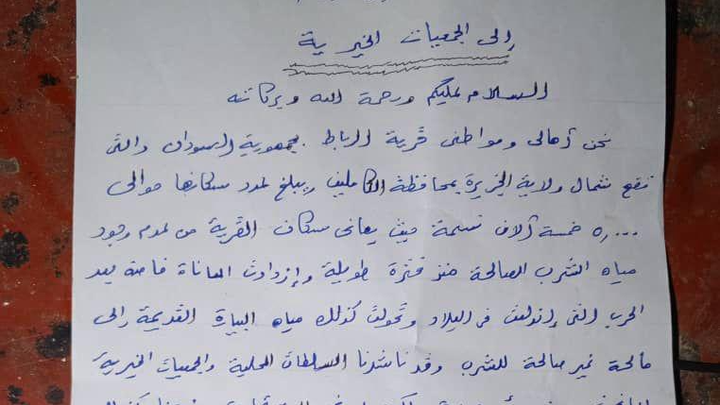 إلى الجمعيات الخيرية
السلام عليكم ورحمة الله وبركاته
نحن أهالى ومواطنى قرية الرباط بجمهورية السودان والتى
تقع شمال ولاية الجزيرة بمحافظة الكاملين ويبلغ عدد سكانها حوالى
٥٠٠٠ خمسة آلاف نسمة حيث يعانى سكان القرية من عدم وجود
مياه الشرب الصالحة منذ فترة طويلة وإزدادت المعاناة خاصة بعد
الحرب التى إندلعت فى البلاد وتحولت كذلك مياه البيارة القديمة إلى
مالحة غير صالحة للشرب وقد ناشدنا السلطات المحلية والجمعيات الخيرية